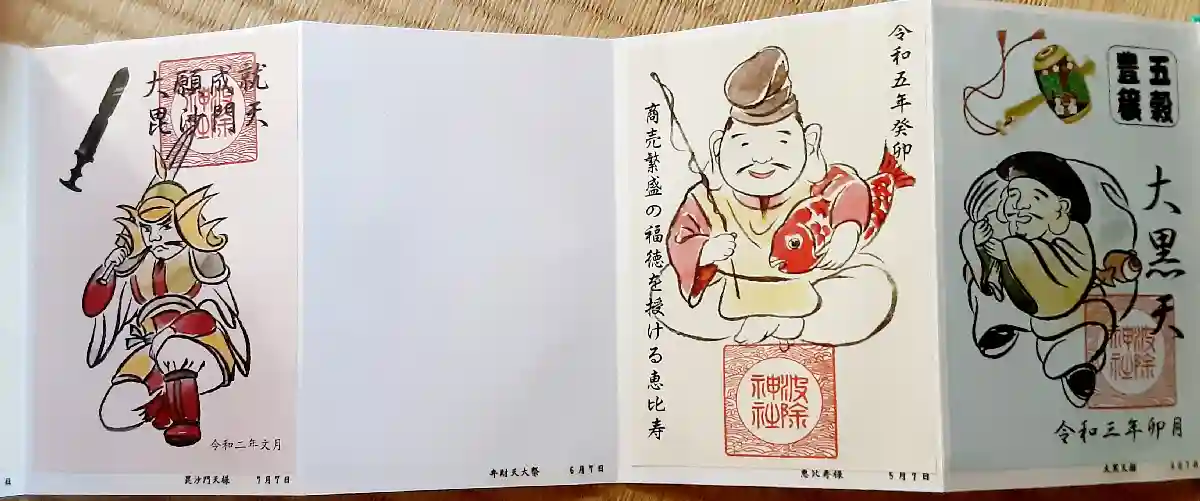 五穀
豊穣
大黒天
波除
神社
令和三年卯月
大黒天様
令和五年癸卯
商売繁盛の福徳を授ける恵比寿
波除
神社
恵比寿様 5月7日
弁財天大祭 6月7日
大願成就
毘沙門天
波除
神社
令和二年文月
毘沙門天様 7月7日